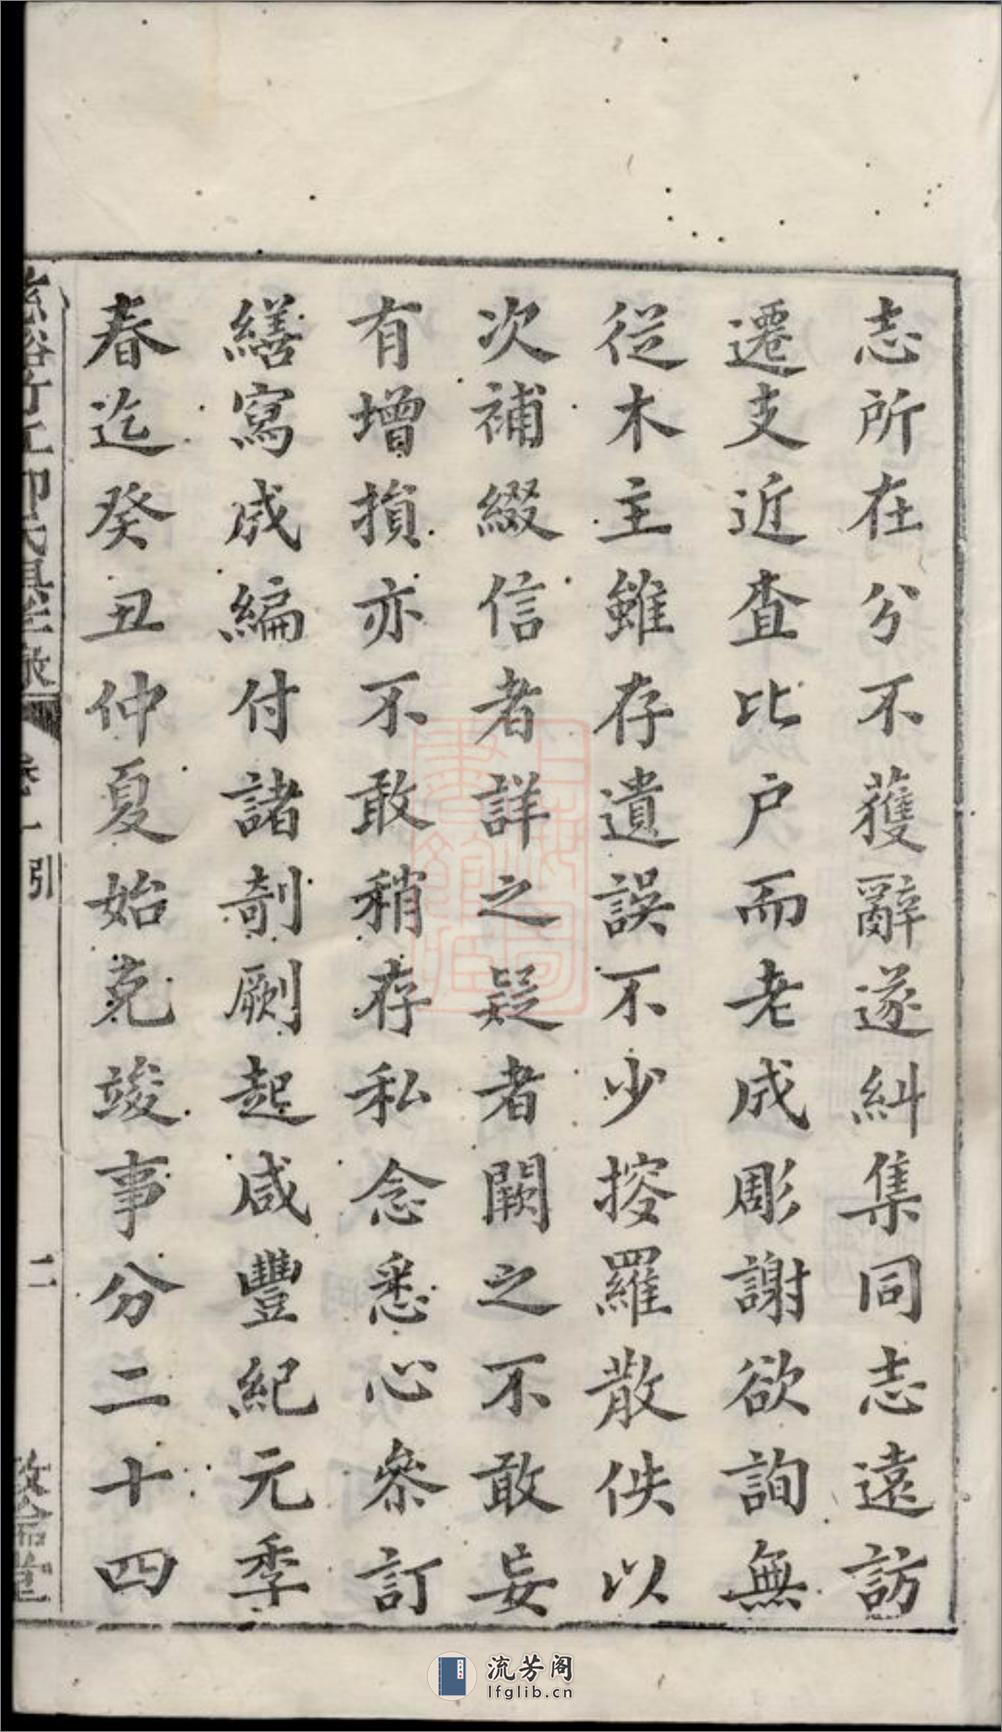 志所在分不獲辭遂糾集同志遠訪
遷支近查比户而老成彫謝欲詢無
從木主雖存遺誤不少搜羅散佚以
次補綴信者詳之疑者闕之不敢妄
有增損亦不敢稍存私念悉心叅訂
繕寫成編付諸剞劂起咸豐紀元季
春迄癸丑仲夏始克竣事分二十四
引
二
流芳阁
lfglib.cn